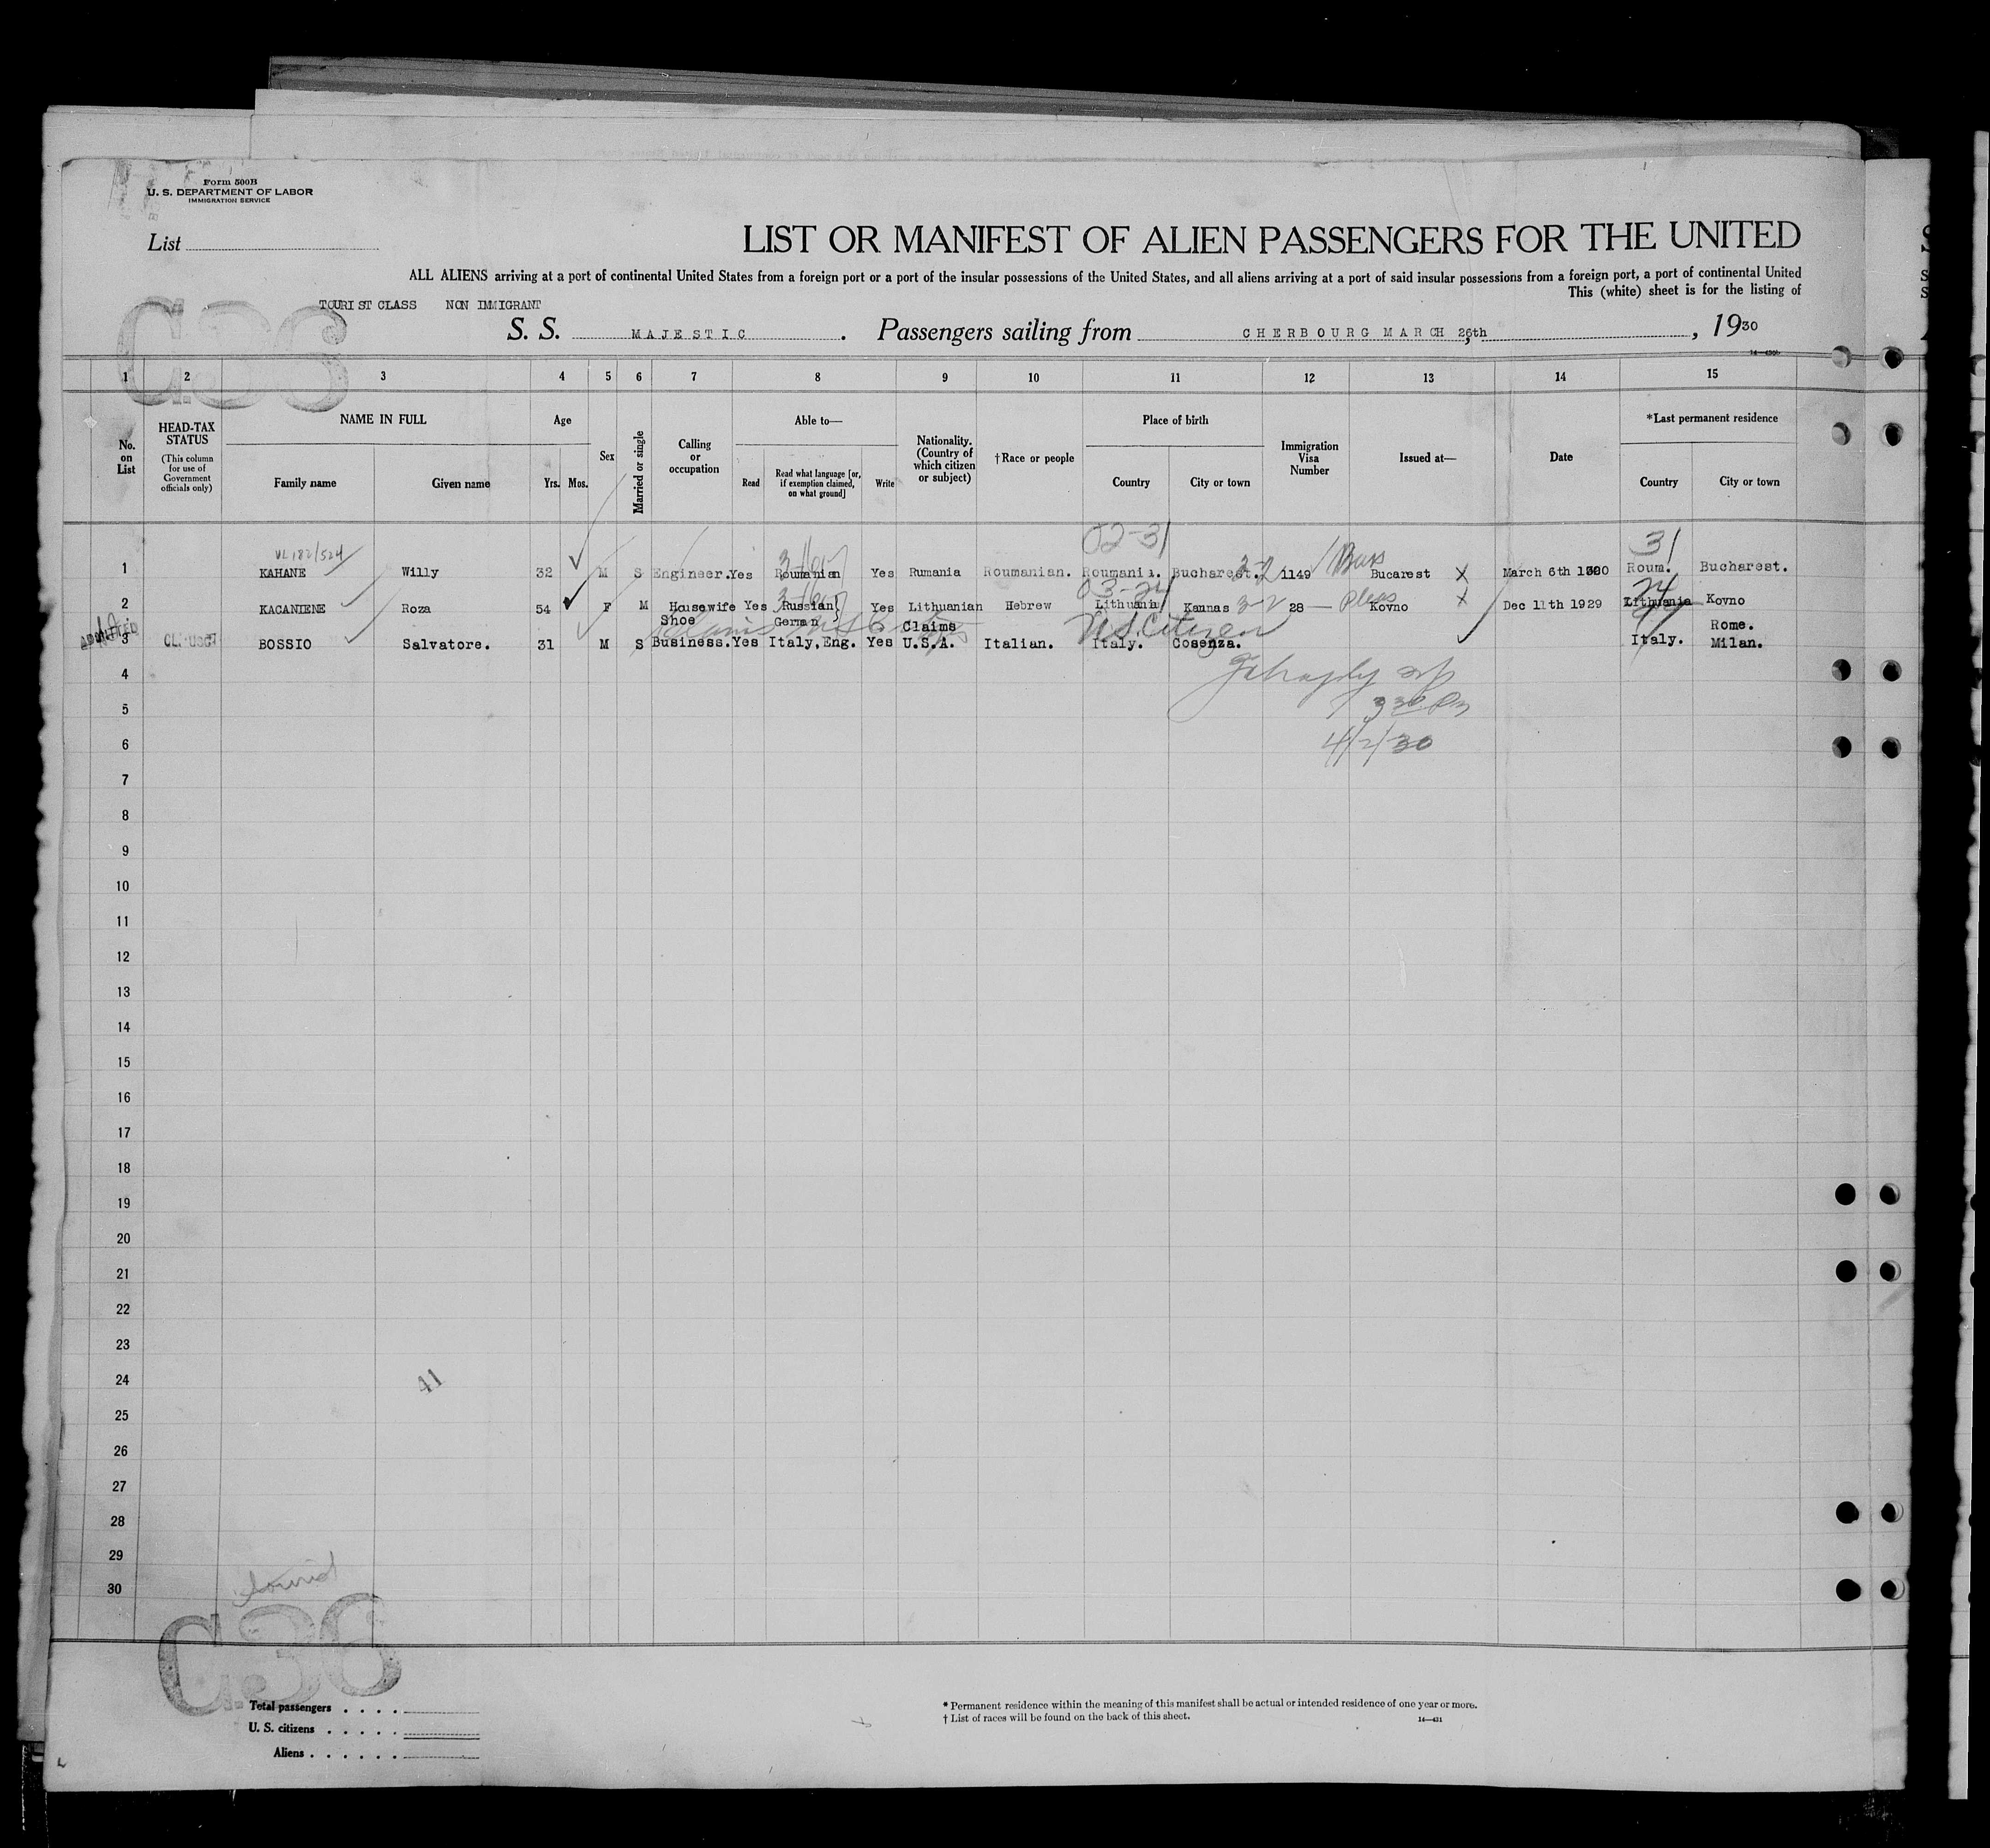 Form 500B
U. S. DEPARTMENT OF LABOR
IMMIGRATION SERVICE
List
LIST OR MANIFEST OF ALIEN PASSENGERS FOR THE UNITED
ALL ALIENS arriving at a port of continental United States from a foreign port or a port of the insular possessions of the United States, and all aliens arriving at a port of said insular possessions from a foreign port, a port of continental United
This (white) sheet is for the listing of
TOURIST CLASS NON IMMIGRANT
G.36
S. S. MAJESTIC. Passengers sailing from CHERBOURG MARCH 26th, 1930
1 2 3 4 5 6 7 8 9 10 11 12 13 14 15
No. on List
HEAD-TAX STATUS
(This column for use of Government officials only)
NAME IN FULL
Family name Given name
Age
Yrs. Mos.
Sex
Married or single
Calling or occupation
Able to—
Read
Read what language [or, if exemption claimed, on what ground]
Write
Nationality. (Country of which citizen or subject)
†Race or people
Place of birth
Country City or town
Immigration Visa Number
Issued at—
Date
*Last permanent residence
Country City or town
02-31 31
1 KAHANE Willy 32 M S Engineer. Yes Roumanian Yes Rumania Roumanian. Roumania. Bucharest. 1149 Bucarest X March 6th 1930 Roum. Bucharest.
03-24 24
2 KACANIENE Roza 54 F M Housewife Yes Russian German Yes Lithuanian Hebrew Lithuania Kannas 28 Kovno X Dec 11th 1929 Lithuania Kovno
U.S. Citizen
3 BOSSIO Salvatore. 31 M S Shoe Business. Yes Italy, Eng. Yes Claims U.S.A. Italian. Italy. Cosenza. Italy. Rome. Milan.
4
3 30 Pm
5
4/2/30
6
7
8
9
10
11
12
13
14
15
16
17
18
19
20
21
22
23
24
41
25
26
27
28
29
30
G.36
Total passengers . . . .
U. S. citizens . . . . .
Aliens . . . . . .
* Permanent residence within the meaning of this manifest shall be actual or intended residence of one year or more.
† List of races will be found on the back of this sheet.
14—431